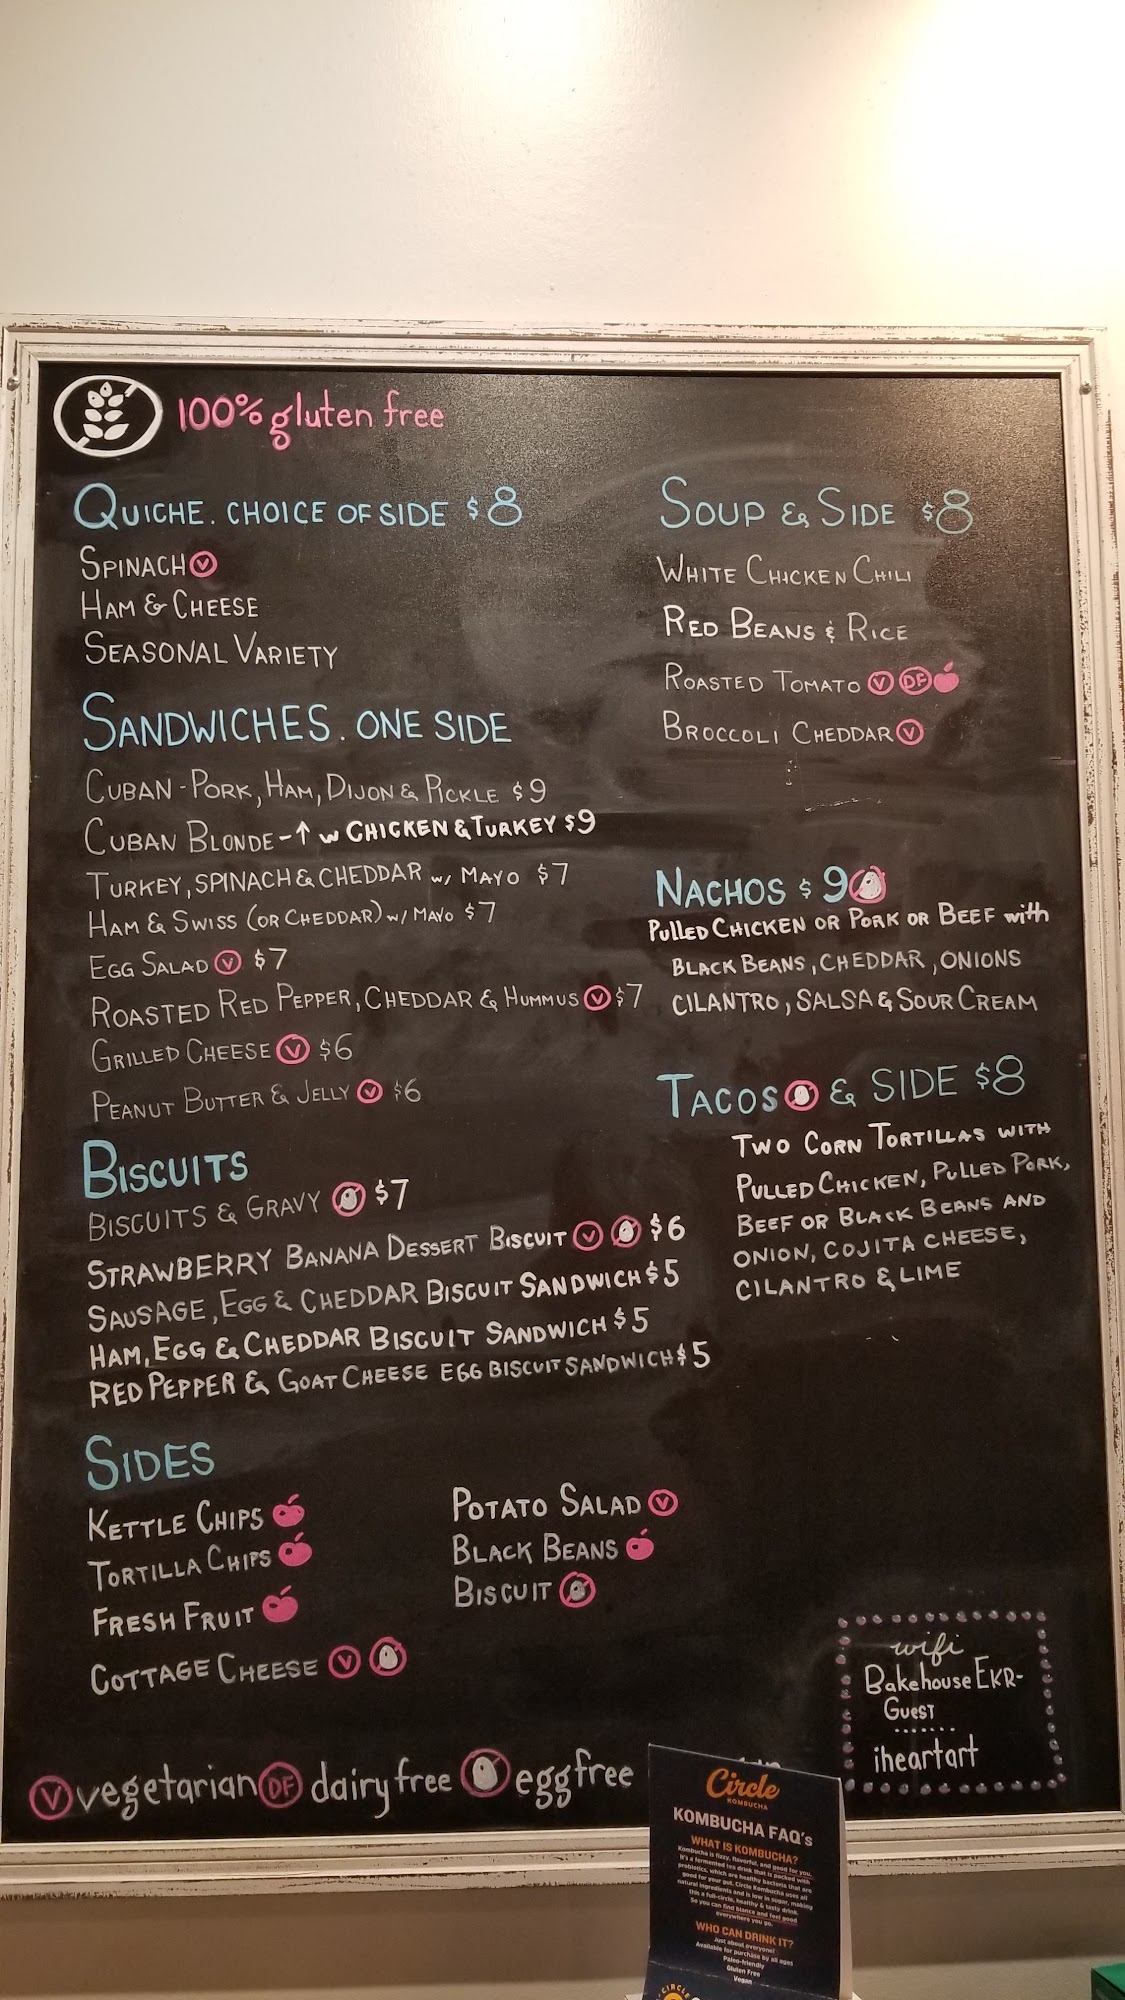 100% gluten free
QUICHE. CHOICE OF SIDE $8
SPINACH V
HAM & CHEESE
SEASONAL VARIETY
SANDWICHES. ONE SIDE
CUBAN - PORK, HAM, DIJON & PICKLE $9
CUBAN BLONDE - ↑ w CHICKEN & TURKEY $9
TURKEY, SPINACH & CHEDDAR w/ MAYO $7
HAM & SWISS (OR CHEDDAR) w/ MAYO $7
EGG SALAD V $7
ROASTED RED PEPPER, CHEDDAR & HUMMUS V $7
GRILLED CHEESE V $6
PEANUT BUTTER & JELLY V $6
BISCUITS
BISCUITS & GRAVY $7
STRAWBERRY BANANA DESSERT BISCUIT V $6
SAUSAGE, EGG & CHEDDAR BISCUIT SANDWICH $5
HAM, EGG & CHEDDAR BISCUIT SANDWICH $5
RED PEPPER & GOAT CHEESE EGG BISCUIT SANDWICH $5
SIDES
KETTLE CHIPS
TORTILLA CHIPS
FRESH FRUIT
COTTAGE CHEESE V
POTATO SALAD V
BLACK BEANS
BISCUIT
SOUP & SIDE $8
WHITE CHICKEN CHILI
RED BEANS & RICE
ROASTED TOMATO V DF
BROCCOLI CHEDDAR V
NACHOS $9
PULLED CHICKEN OR PORK OR BEEF with
BLACK BEANS, CHEDDAR, ONIONS
CILANTRO, SALSA & SOUR CREAM
TACOS & SIDE $8
TWO CORN TORTILLAS WITH
PULLED CHICKEN, PULLED PORK,
BEEF OR BLACK BEANS AND
ONION, COJITA CHEESE,
CILANTRO & LIME
wifi
Bakehouse EKR-
GUEST
iheartart
V vegetarian DF dairy free egg free
Circle
KOMBUCHA
KOMBUCHA FAQ's
WHAT IS KOMBUCHA?
Kombucha is fizzy, flavorful, and good for you.
It's a fermented tea drink that is packed with
probiotics, which are healthy bacteria that are
good for your gut. Circle Kombucha uses all
natural ingredients and is low in sugar, making
this a full-circle, healthy & tasty drink.
So you can find blance and feel good
everywhere you go.
WHO CAN DRINK IT?
Just about everyone!
Available for purchase by all ages
Paleo-friendly
Gluten Free
Vegan
CIRCLE